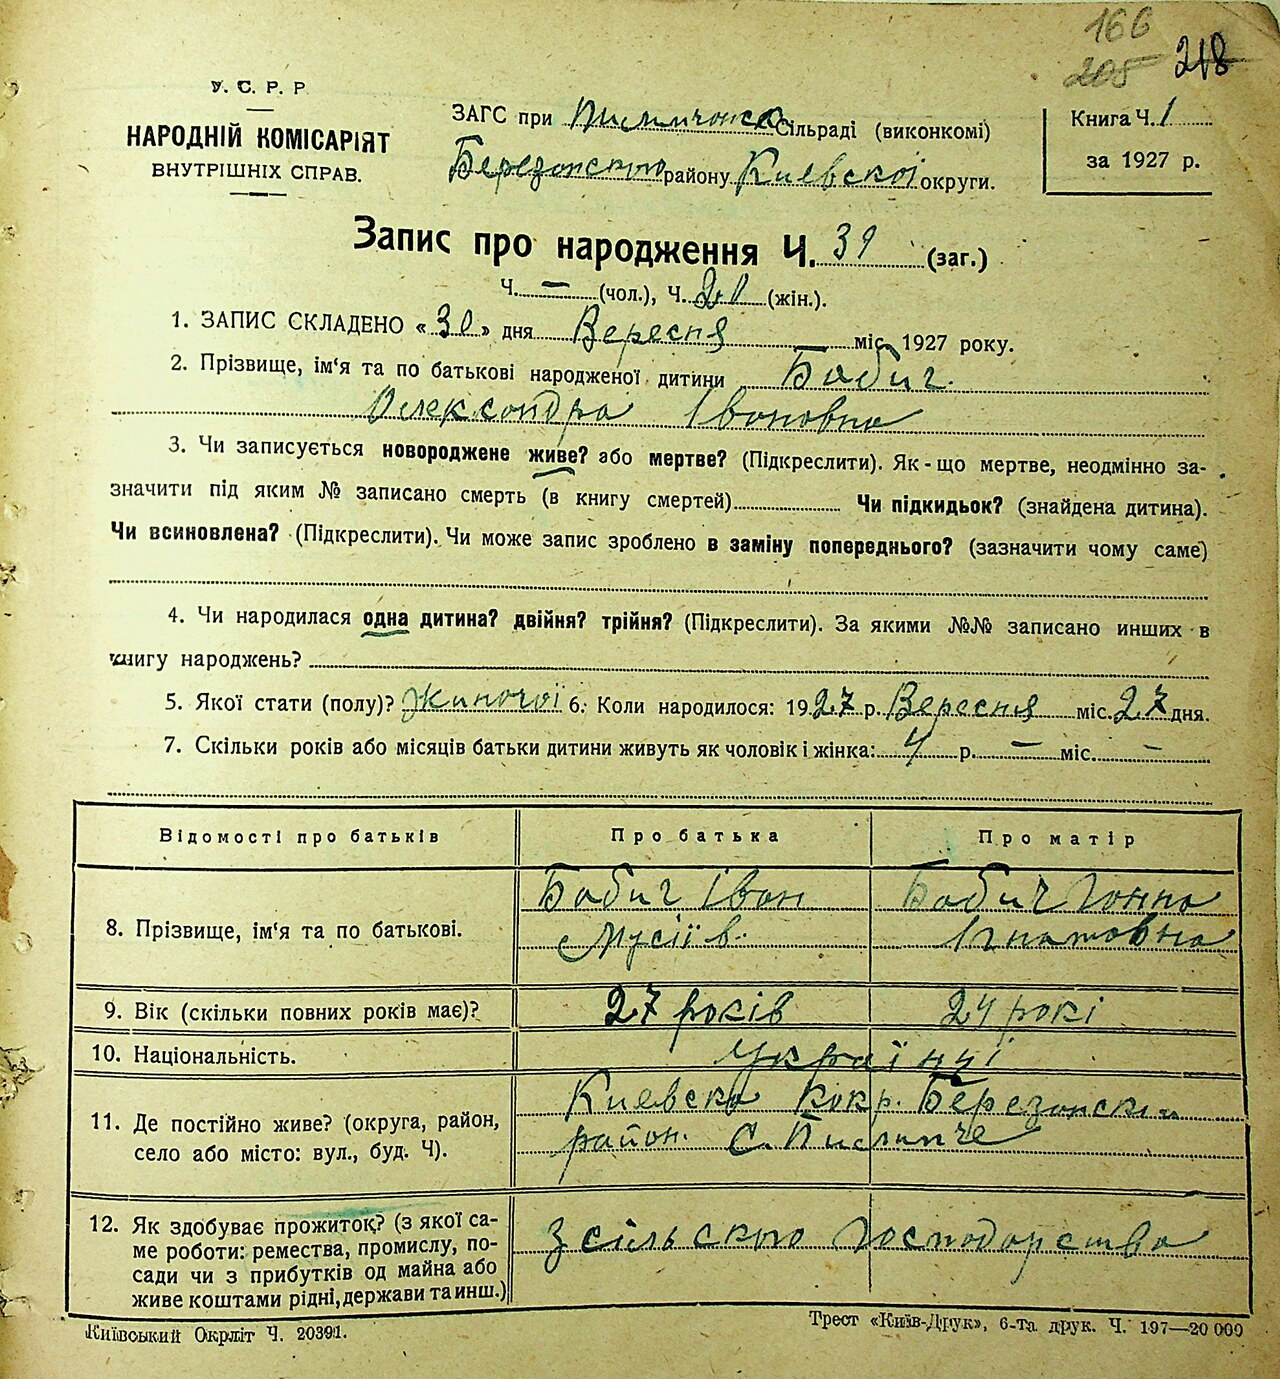 166
205 218
У. С. Р. Р
НАРОДНІЙ КОМІСАРІЯТ
ВНУТРІШНІХ СПРАВ.
ЗАГС при Сільраді (виконкомі)
Березанского району Киевскої округи.
Книга Ч. 1
за 1927 р.
Запис про народження Ч. 39 (заг.)
Ч. — (чол.), Ч. 20 (жін.).
1. ЗАПИС СКЛАДЕНО «30» дня Вересня міс. 1927 року.
2. Прізвище, ім‘я та по батькові народженої дитини Бабич
Олександра Івановна
3. Чи записується новороджене живе? або мертве? (Підкреслити). Як-що мертве, неодмінно за-
значити під яким № записано смерть (в книгу смертей) Чи підкидьок? (знайдена дитина).
Чи всиновлена? (Підкреслити). Чи може запис зроблено в заміну попереднього? (зазначити чому саме)
4. Чи народилася одна дитина? двійня? трійня? (Підкреслити). За якими №№ записано инших в
книгу народжень?
5. Якої стати (полу)? Жиночої 6. Коли народилося: 1927 р. Вересня міс. 27 дня.
7. Скільки років або місяців батьки дитини живуть як чоловік і жінка: 4 р. — міс. —
Відомості про батьків Про батька Про матір
8. Прізвище, ім‘я та по батькові. Бабич Іван Бабич Ганна
Мусіїв. Ігнатовна
9. Вік (скільки повних років має)? 27 років 24 рокі
10. Національність. Українці
11. Де постійно живе? (округа, район, Киевска окр. Березанский
село або місто: вул., буд. Ч). район. С. Пилипче
12. Як здобуває прожиток? (з якої са- З сільского господарства
ме роботи: ремества, промислу, по-
сади чи з прибутків од майна або
живе коштами рідні, держави та инш.)
Київський Окрліт Ч. 20391.
Трест «Київ-Друк», 6-та друк. Ч. 197—20 000